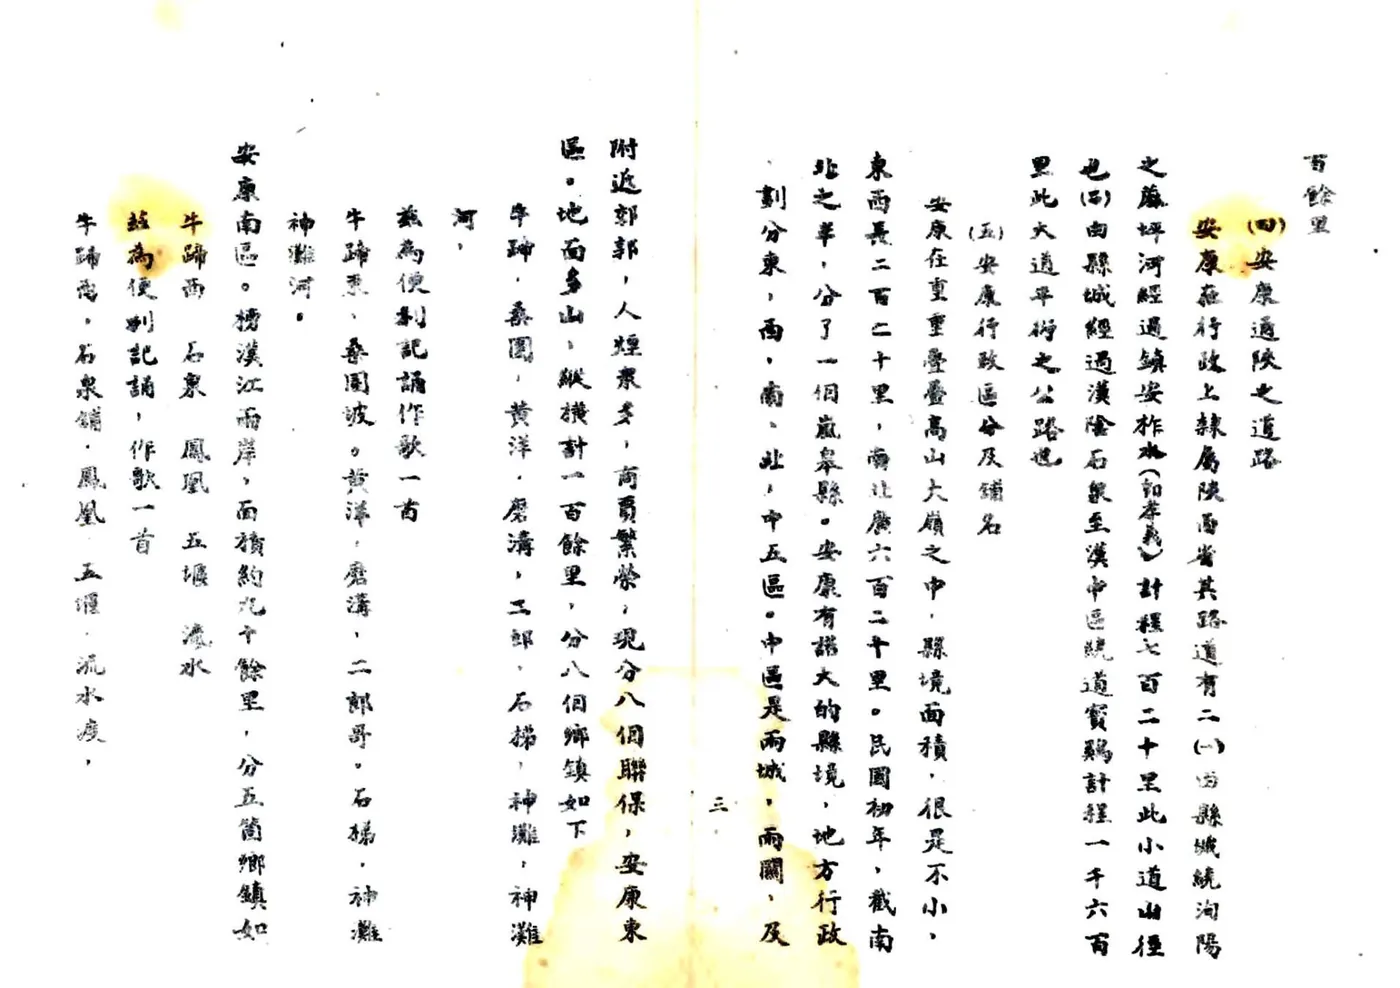 百餘里
(四)安康通陝之道路
安康在行政上隸屬陝西省其路道有二(一)由縣城繞洵陽
之蔴坪河經過鎮安柞水(卽孝義)計程七百二十里此小道山徑
也(二)由縣城經過漢陰石泉至漢中區繞道寶鷄計程一千六百
里此大道平衍之公路也
(五)安康行政區分及鋪名
安康在重重疊疊高山大嶺之中，縣境面積，很是不小，
東西長二百二十里，南北廣六百二十里。民國初年，截南
北之半，分了一個嵐皋縣。安康有諾大的縣境，地方行政
劃分東，西，南、北，中五區。中區是兩城，兩關，及
三
附近郭郭，人煙衆多，商賈繁榮，現分八個聯保，安康東
區。地面多山，縱橫計一百餘里，分八個鄉鎮如下
牛蹄，桑園，黃洋，磨溝，二郎，石梯，神灘，神灘
河，
茲為便利記誦作歌一首
牛蹄東、桑園坡。黃洋，磨溝，二郎哥。石梯，神灘
神灘河。
安康南區。榜漢江兩岸，面積約九十餘里，分五箇鄉鎮如
牛蹄西 石泉 鳳凰 五堰 流水
茲為便利記誦，作歌一首
牛蹄西，石泉鋪，鳳凰 五堰，流水度，